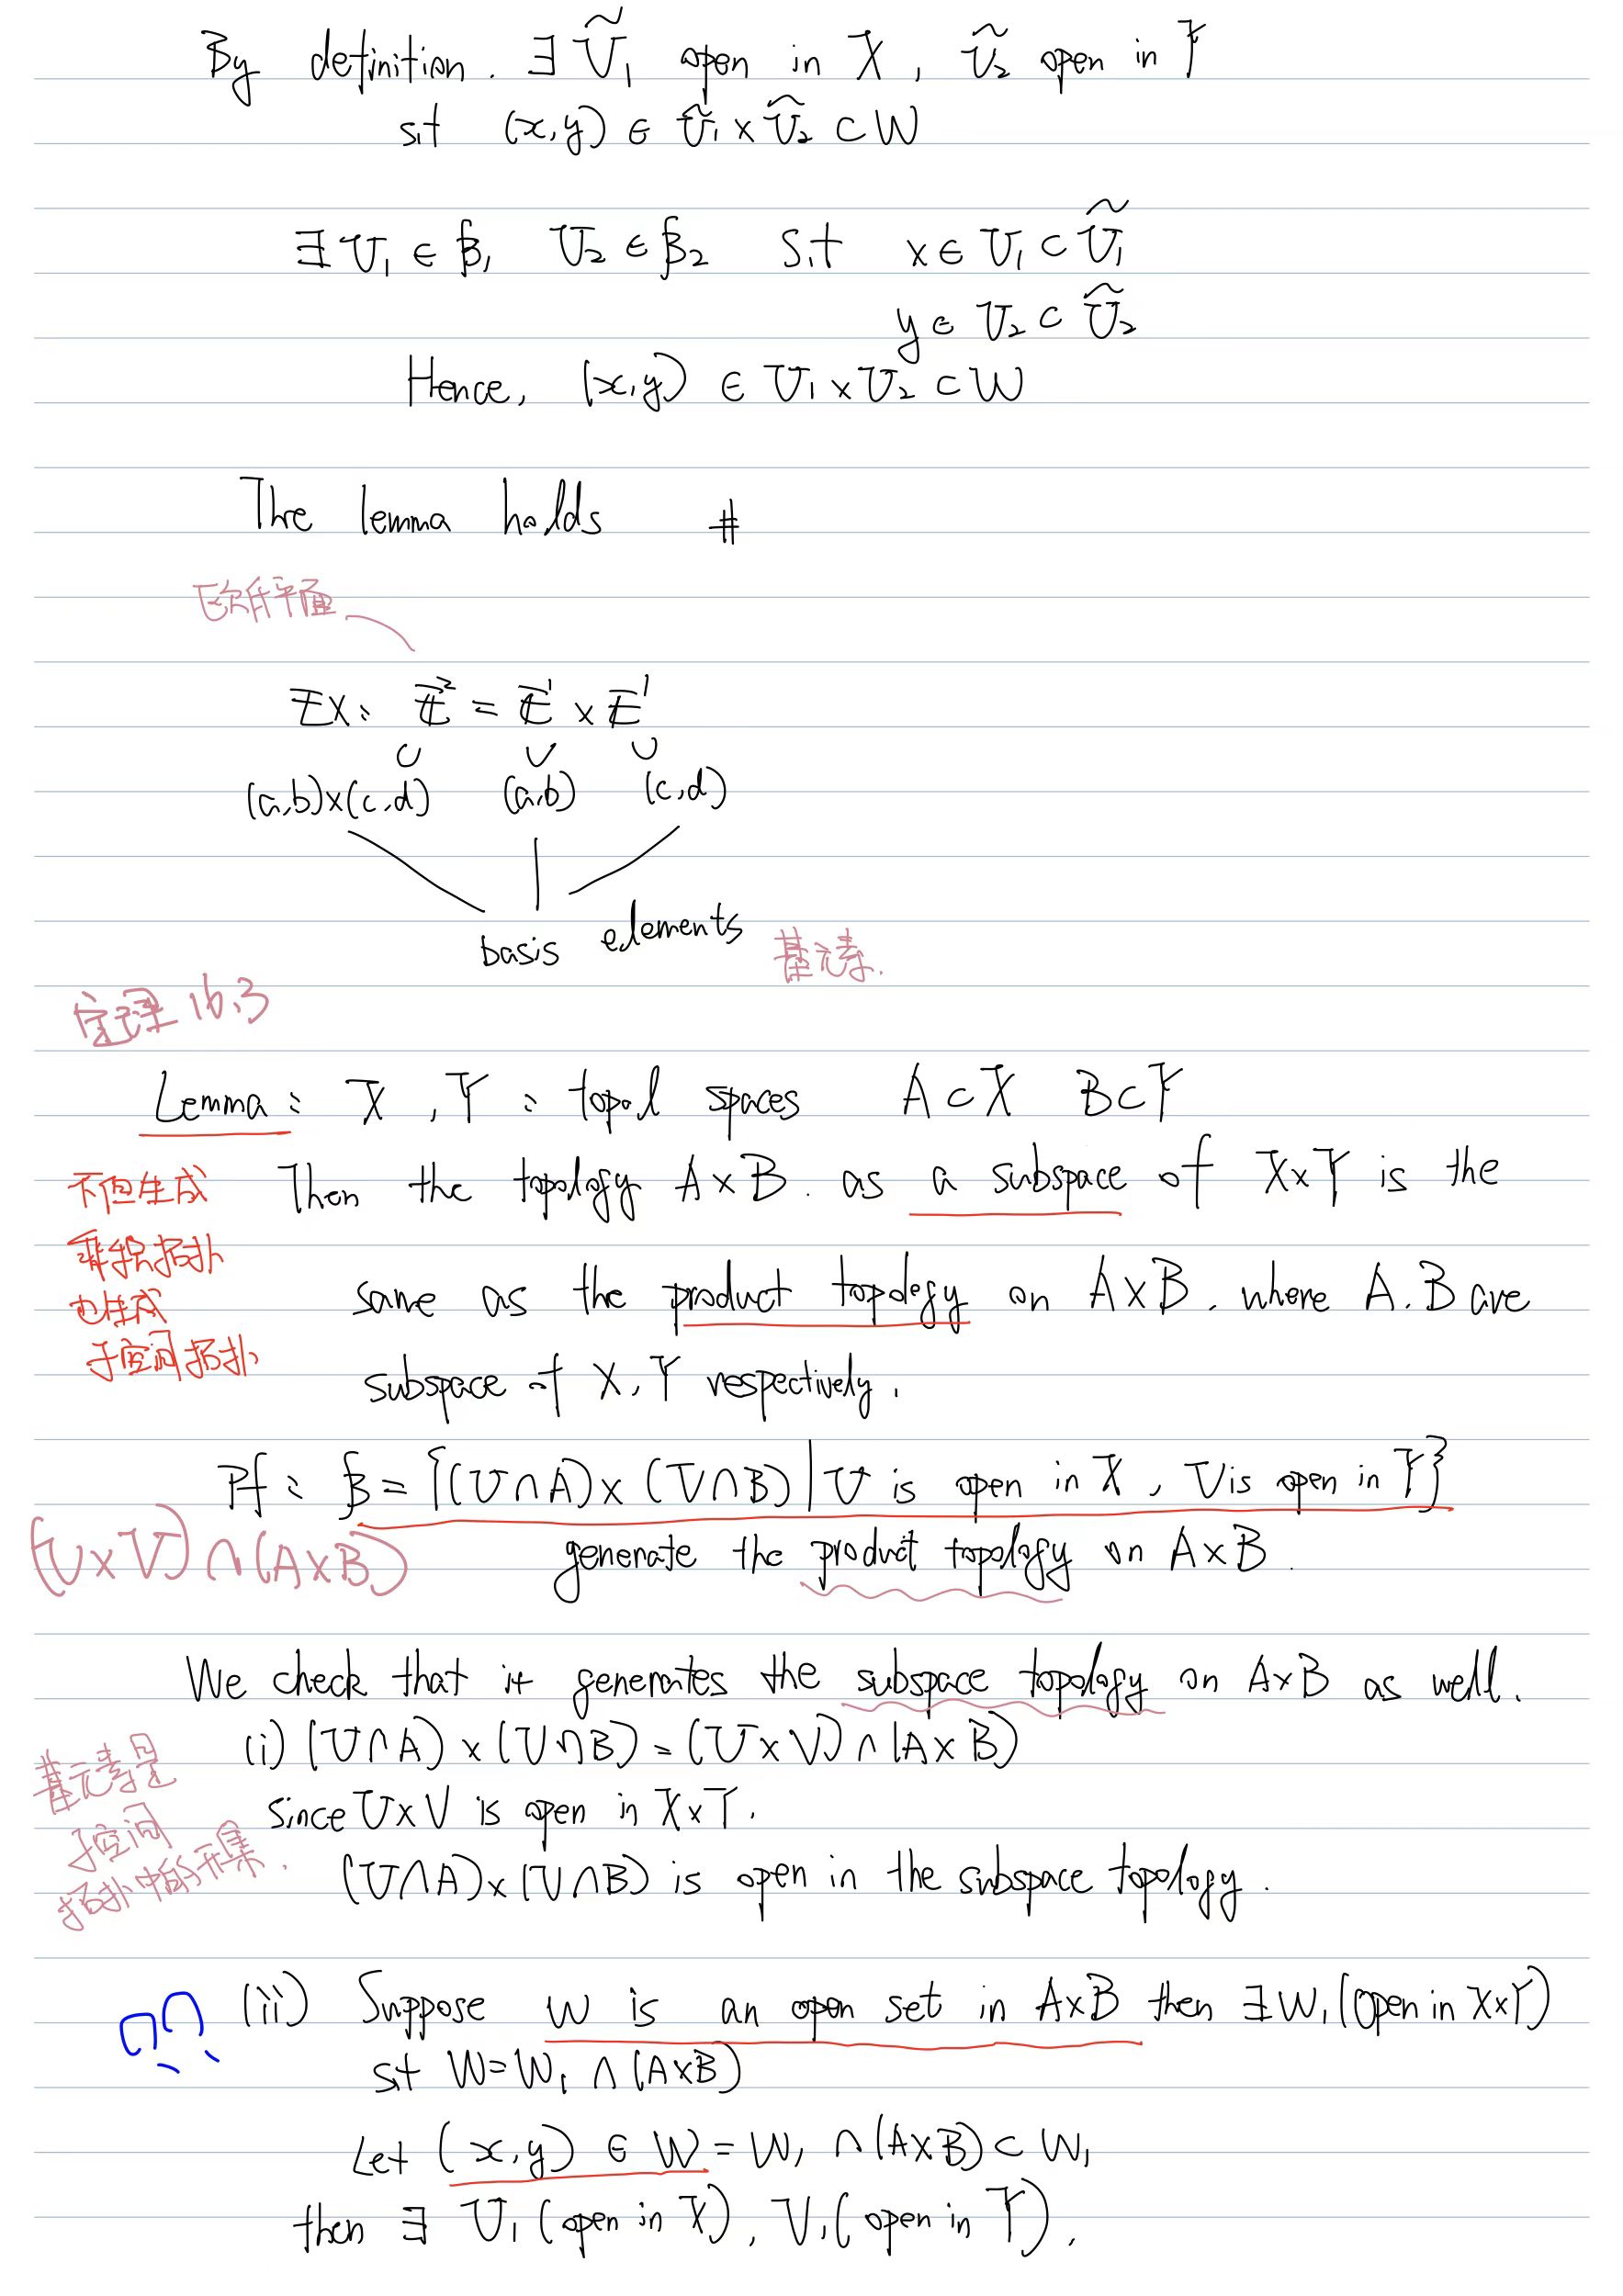 By definition. ∃ Ũ₁ open in X, Ũ₂ open in Y
s.t (x,y) ∈ Ũ₁ × Ũ₂ ⊂ W
∃ U₁ ∈ ℬ₁ U₂ ∈ ℬ₂ s.t x ∈ U₁ ⊂ Ũ₁
y ∈ U₂ ⊂ Ũ₂
Hence, (x,y) ∈ U₁ × U₂ ⊂ W
The lemma holds #
欧氏平面
EX: E² = E¹ × E¹
∪ ∪ ∪
(a,b)×(c,d) (a,b) (c,d)
basis elements 基元素.
定理 16.3
Lemma: X, Y: topol spaces A⊂X B⊂Y
不但生成
乘积拓扑
也生成
子空间拓扑
Then the topology A×B. as a subspace of X×Y is the
same as the product topology on A×B, where A.B are
subspace of X,Y respectively.
Pf: ℬ = {(U∩A)×(V∩B)|U is open in X, V is open in Y}
(U×V)∩(A×B)
generate the product topology on A×B.
We check that it generates the subspace topology on A×B as well.
基元素是
子空间
拓扑中的开集.
(i) (U∩A)×(V∩B)=(U×V)∩(A×B)
since U×V is open in X×Y.
(U∩A)×(V∩B) is open in the subspace topology.
(ii) Suppose W is an open set in A×B then ∃W₁(open in X×Y)
st W=W₁∩(A×B)
Let (x,y) ∈ W = W₁∩(A×B)⊂W₁
then ∃ U₁(open in X), V₁(open in Y),